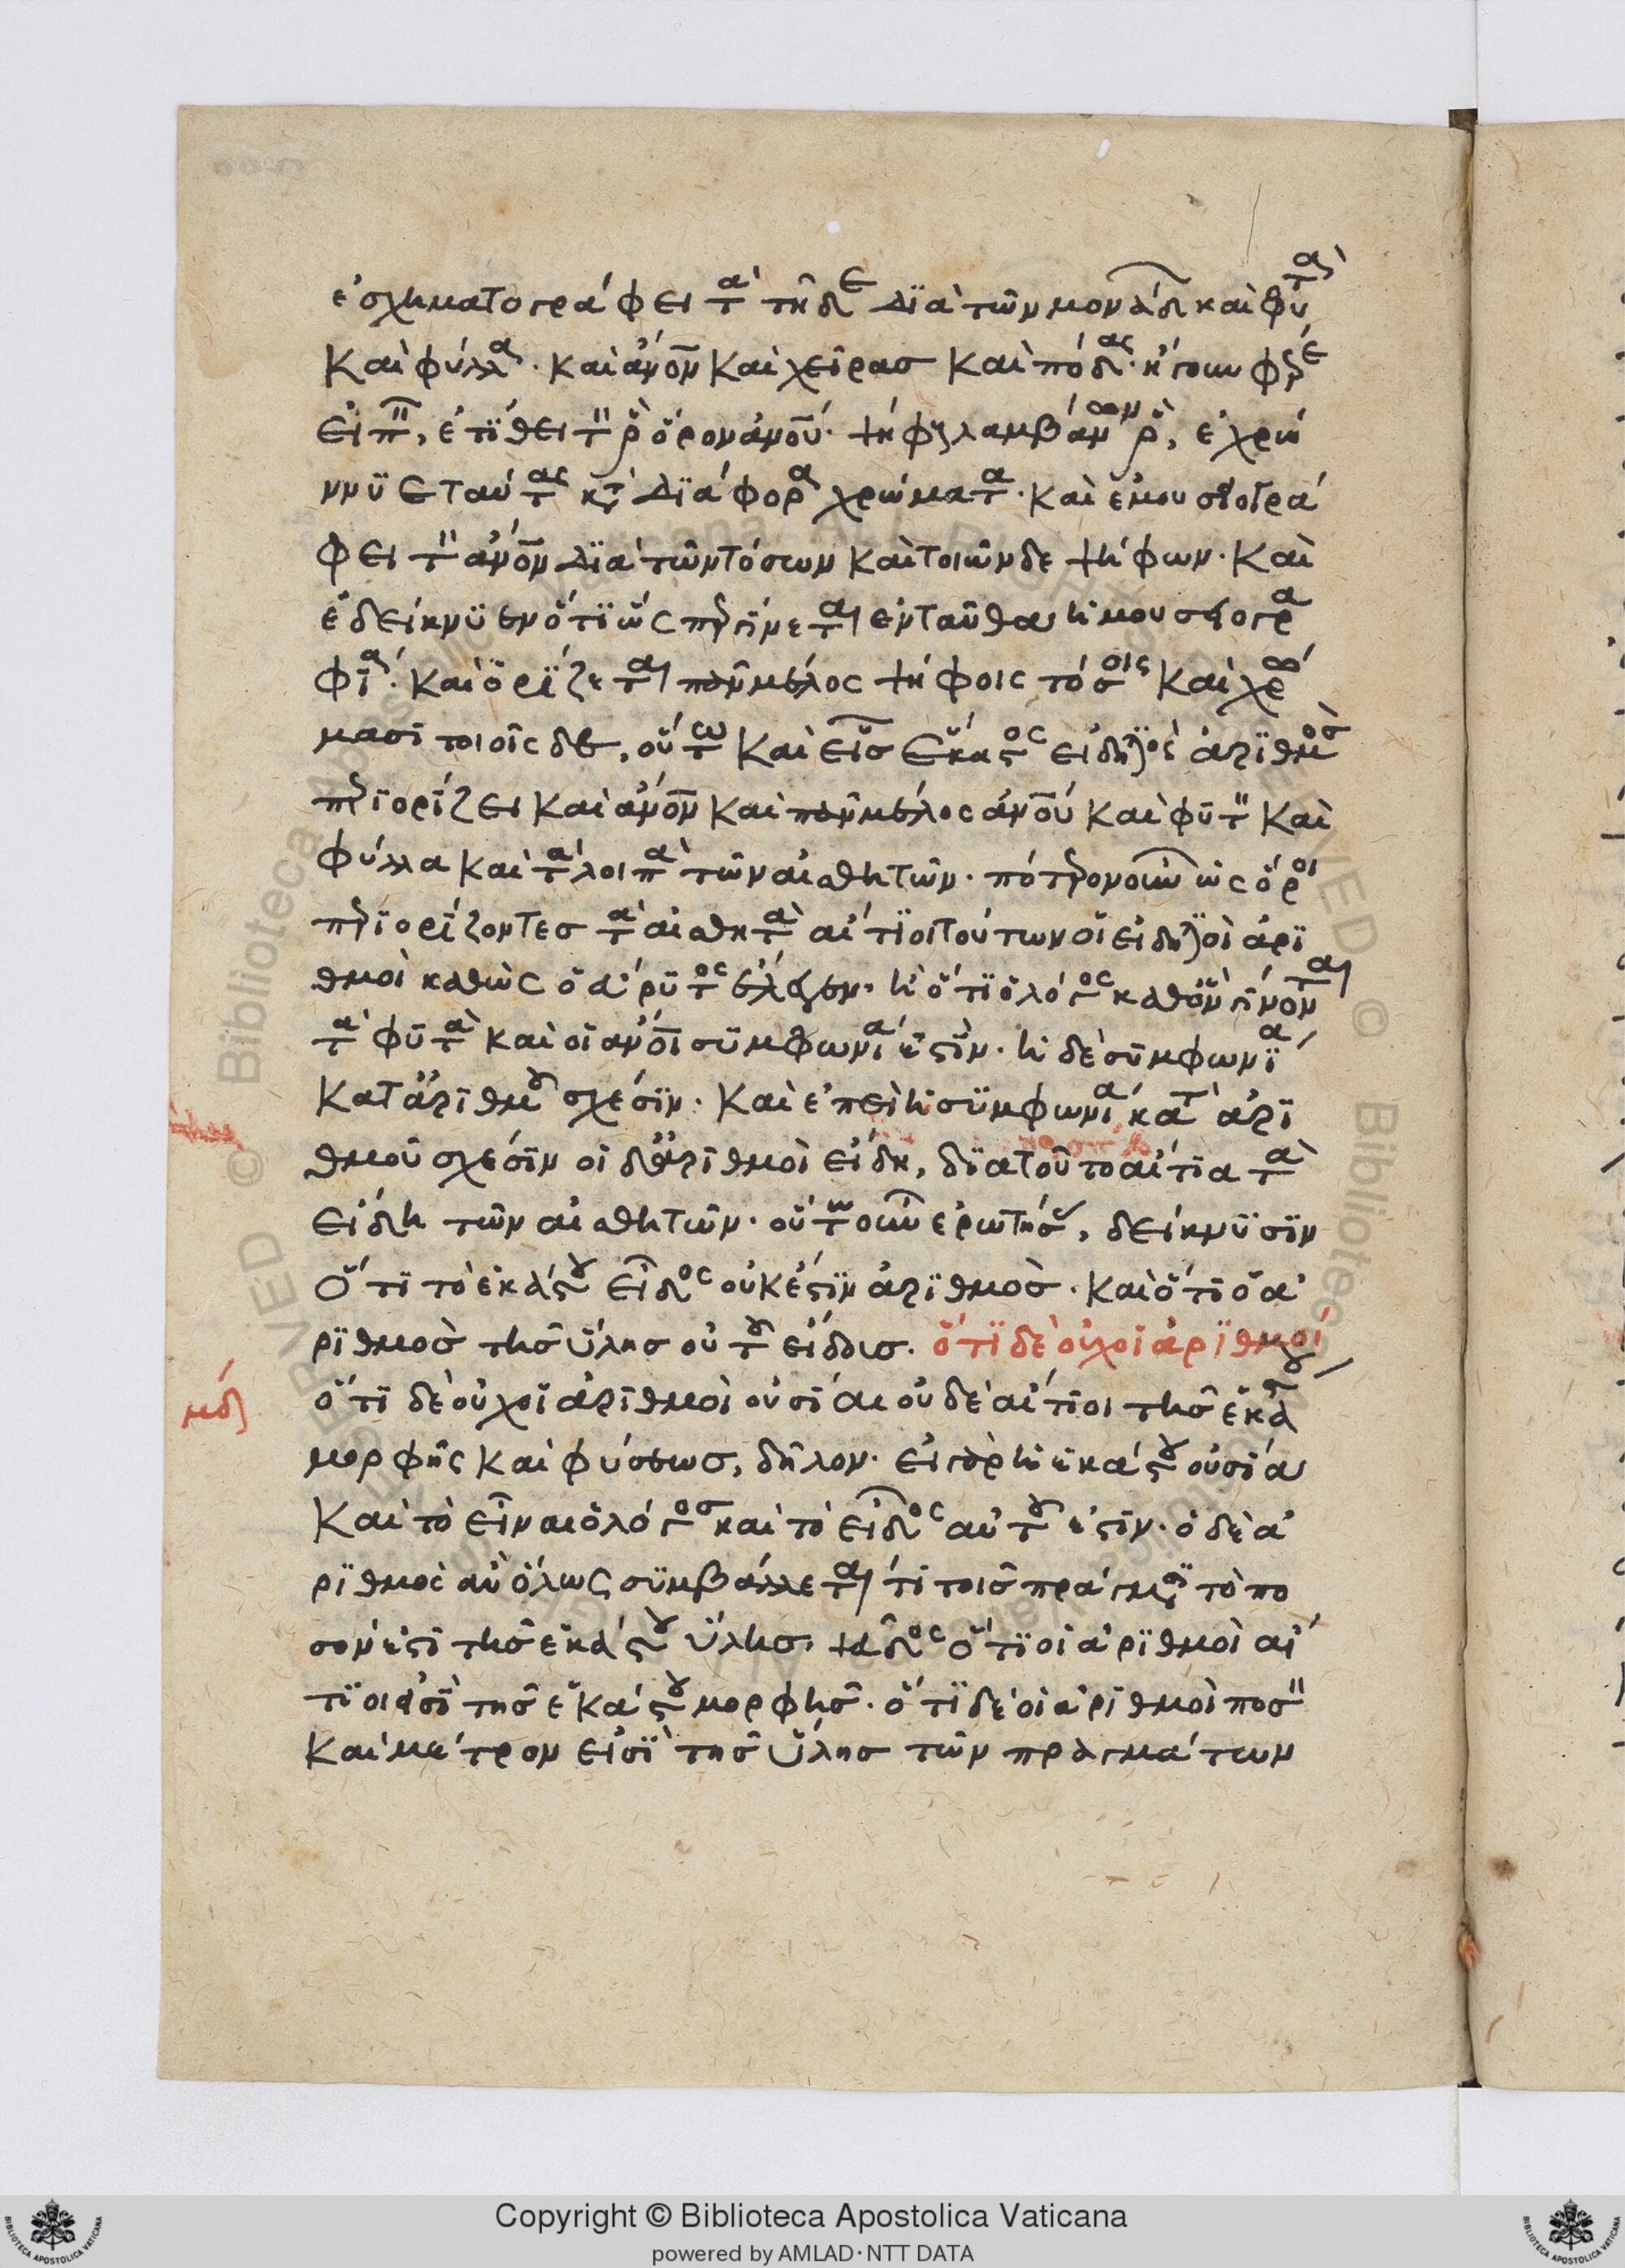 ἐσχηματογράφει τὰ τῆδε διὰ τῶν μονάδων καὶ φυτὰ
καὶ φύλλα. καὶ ἄνον καὶ χεῖρας καὶ πόδας. ἤγουν
ἐτίθει τὸν ὅρον ἀνου. λαμβάνων ἐχρώ
ννυε ταύτας κατὰ διάφορα χρώματα. καὶ
φει τὸν ἄνον διὰ τῶν τόσων καὶ τοιῶνδε ψήφων. καὶ
ἐδείκνυεν ὅτι ὡς ἐνταῦθα ἡ
φία. καὶ ὁρίζεται πᾶν μέλος ψήφοις τόσοις καὶ χρώ
μασι τοιοῖσδε, οὕτω καὶ εἷς ἕκαστος εἰδητικὸς ἀριθμὸς
περιορίζει καὶ ἄνον καὶ πᾶν μέλος ἀνου καὶ φυτὸν καὶ
φύλλα καὶ τὰ λοιπὰ τῶν αἰσθητῶν. πότερον οὖν ὡς ὅροι
περιορίζοντες τὰ αἰσθητὰ αἴτιοι τούτων οἱ εἰδητικοὶ ἀρι
θμοὶ καθὼς ὁ εὔρυτος ἔλεγεν. ἢ ὅτι ὁ λόγος καθ' ὃν γίνονται
τὰ φυτὰ καὶ οἱ ἄνοι συμφωνία ἐστίν. ἡ δὲ συμφωνία
κατ' ἀριθμοῦ σχέσιν. καὶ ἐπεὶ ἡ συμφωνία κατὰ ἀρι
θμοῦ σχέσιν οἱ δ' ἀριθμοὶ εἴδη, διατοῦτο αἴτια τὰ
εἴδη τῶν αἰσθητῶν. οὕτως οὖν ἐρωτήσας, δείκνυσιν
ὅτι τὸ ἑκάστου εἶδος οὐκ ἔστιν ἀριθμὸς. καὶ ὅτι ὁ ἀ
ριθμὸς τῆς ὕλης οὐ τοῦ εἴδους. ὅτι δὲ οὐχ οἱ ἀριθμοί
μδ ὅτι δὲ οὐχ οἱ ἀριθμοὶ οὐσίαι οὐδὲ αἴτιοι τῆς ἑκάστου
μορφῆς καὶ φύσεως, δῆλον. εἰ γὰρ ἡ ἑκάστου οὐσία
καὶ τὸ εἶναι ὁ λόγος καὶ τὸ εἶδος αὐτοῦ ἐστιν. ὁ δὲ ἀ
ριθμὸς ἂν ὅλως συμβάλλεταί τι τοῖς πράγμασι τὸ πο
σόν ἐστι τῆς ἑκάστου ὕλης, ψεῦδος ὅτι οἱ ἀριθμοὶ αἴ
τιοι εἰσὶ τῆς ἑκάστου μορφῆς. ὅτι δὲ οἱ ἀριθμοὶ ποσὸν
καὶ μέτρον εἰσὶ τῆς ὕλης τῶν πραγμάτων
Copyright © Biblioteca Apostolica Vaticana
powered by AMLAD·NTT DATA